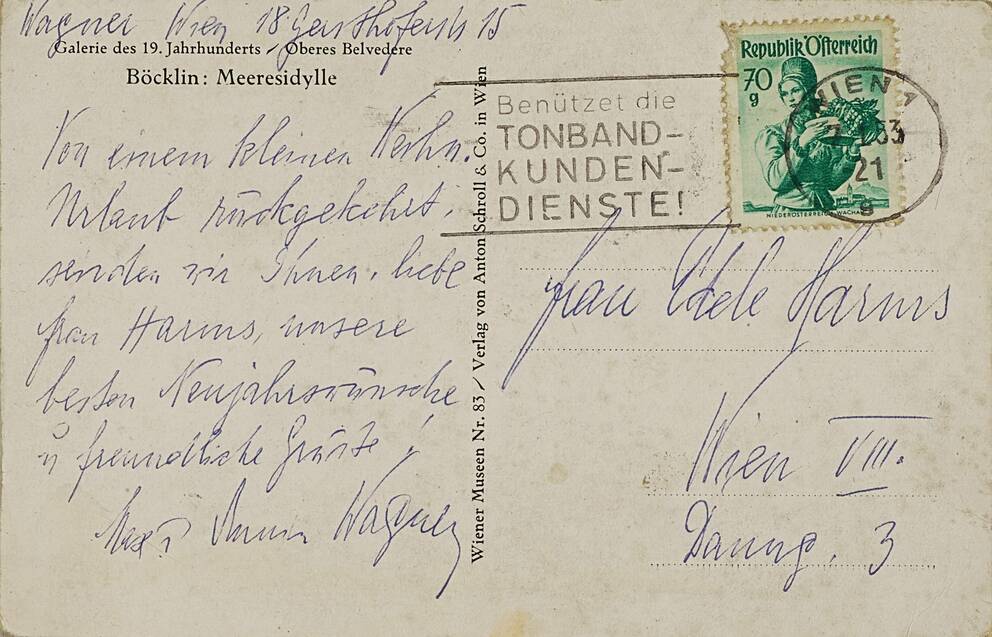 Wagner Wien 18 Gersthoferstr 15
Galerie des 19. Jahrhunderts / Oberes Belvedere
Böcklin: Meeresidylle
Von einem kleinen Weihn.
Urlaub rückgekehrt,
senden wir Ihnen, liebe
Frau Harms, unsere
besten Neujahrswünsche
u freundliche Grüße!
Wagner
Wiener Museen Nr. 83 / Verlag von Anton Schroll & Co. in Wien
Benützet die
TONBAND-
KUNDEN-
DIENSTE!
Republik Österreich
70
g
NIEDERÖSTERREICH, WACHAU
WIEN 1
53
21
g
Frau Adele Harms
Wien VIII.
Danng. 3